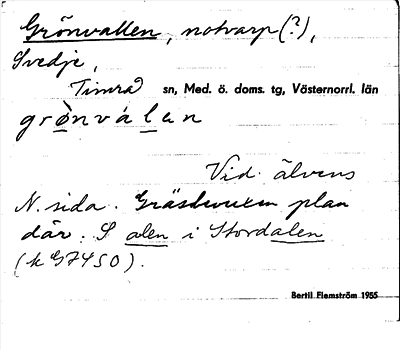 Grönvallen, notvarp(?),
Svedje,
Timrå sn, Med. ö. doms. tg, Västernorrl. län
grònválen
Vid älvens
N. sida. Gräsbevuxen plan
där. S alen i Stordalen
(k G7450).
Bertil Flemström 1955